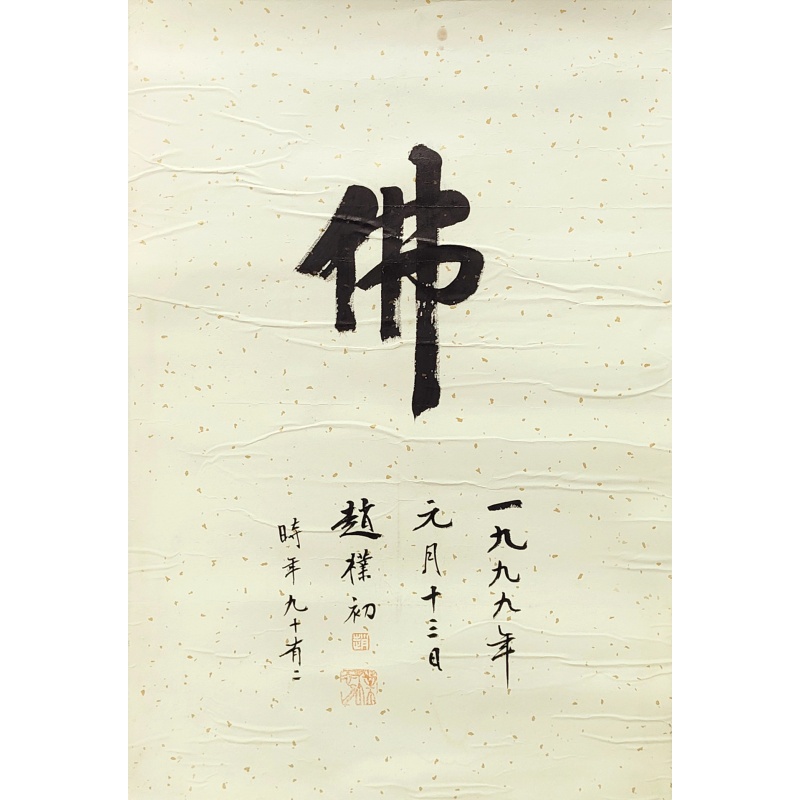 佛
一九九九年
元月十三日
趙樸初
時年九十有二